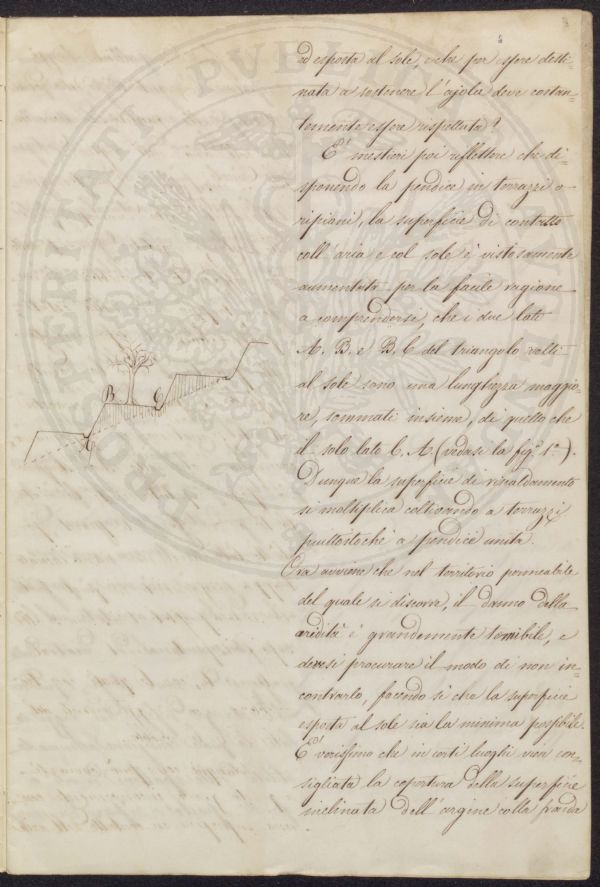 ed esposta al sole, e che per essere desti=
nata a sostenere l'ajola deve costan=
temente essere rispettata?
E' mestieri poi riflettere che di=
sponendo la pendice in terrazzi o
ripiani, la superficie di contatto
coll'aria e col sole è vistosamente
aumentata per la facile ragione
a comprendersi, che i due lati
A. B. e B. C del triangolo volti
al sole sono una lunghezza maggio=
re, sommati insieme, di quello che
il solo lato C. A. (vedasi la fig.ª 1.ª).
Dunque la superficie di riscaldamento
si moltiplica coltivando a terrazzi
piuttostochè a pendice unita.
Ora avviene che nel territorio permeabile
del quale si discorre, il danno della
aridità è grandemente temibile, e
devesi procurare il modo di non in=
contrarlo, facendo sì che la superficie
esposta al sole sia la minima possibile.
E' verissimo che in certi luoghi vien con=
sigliata la copertura della superficie
inclinata dell'argine colla
B
C
A
POSTERITATI PVBLICAE